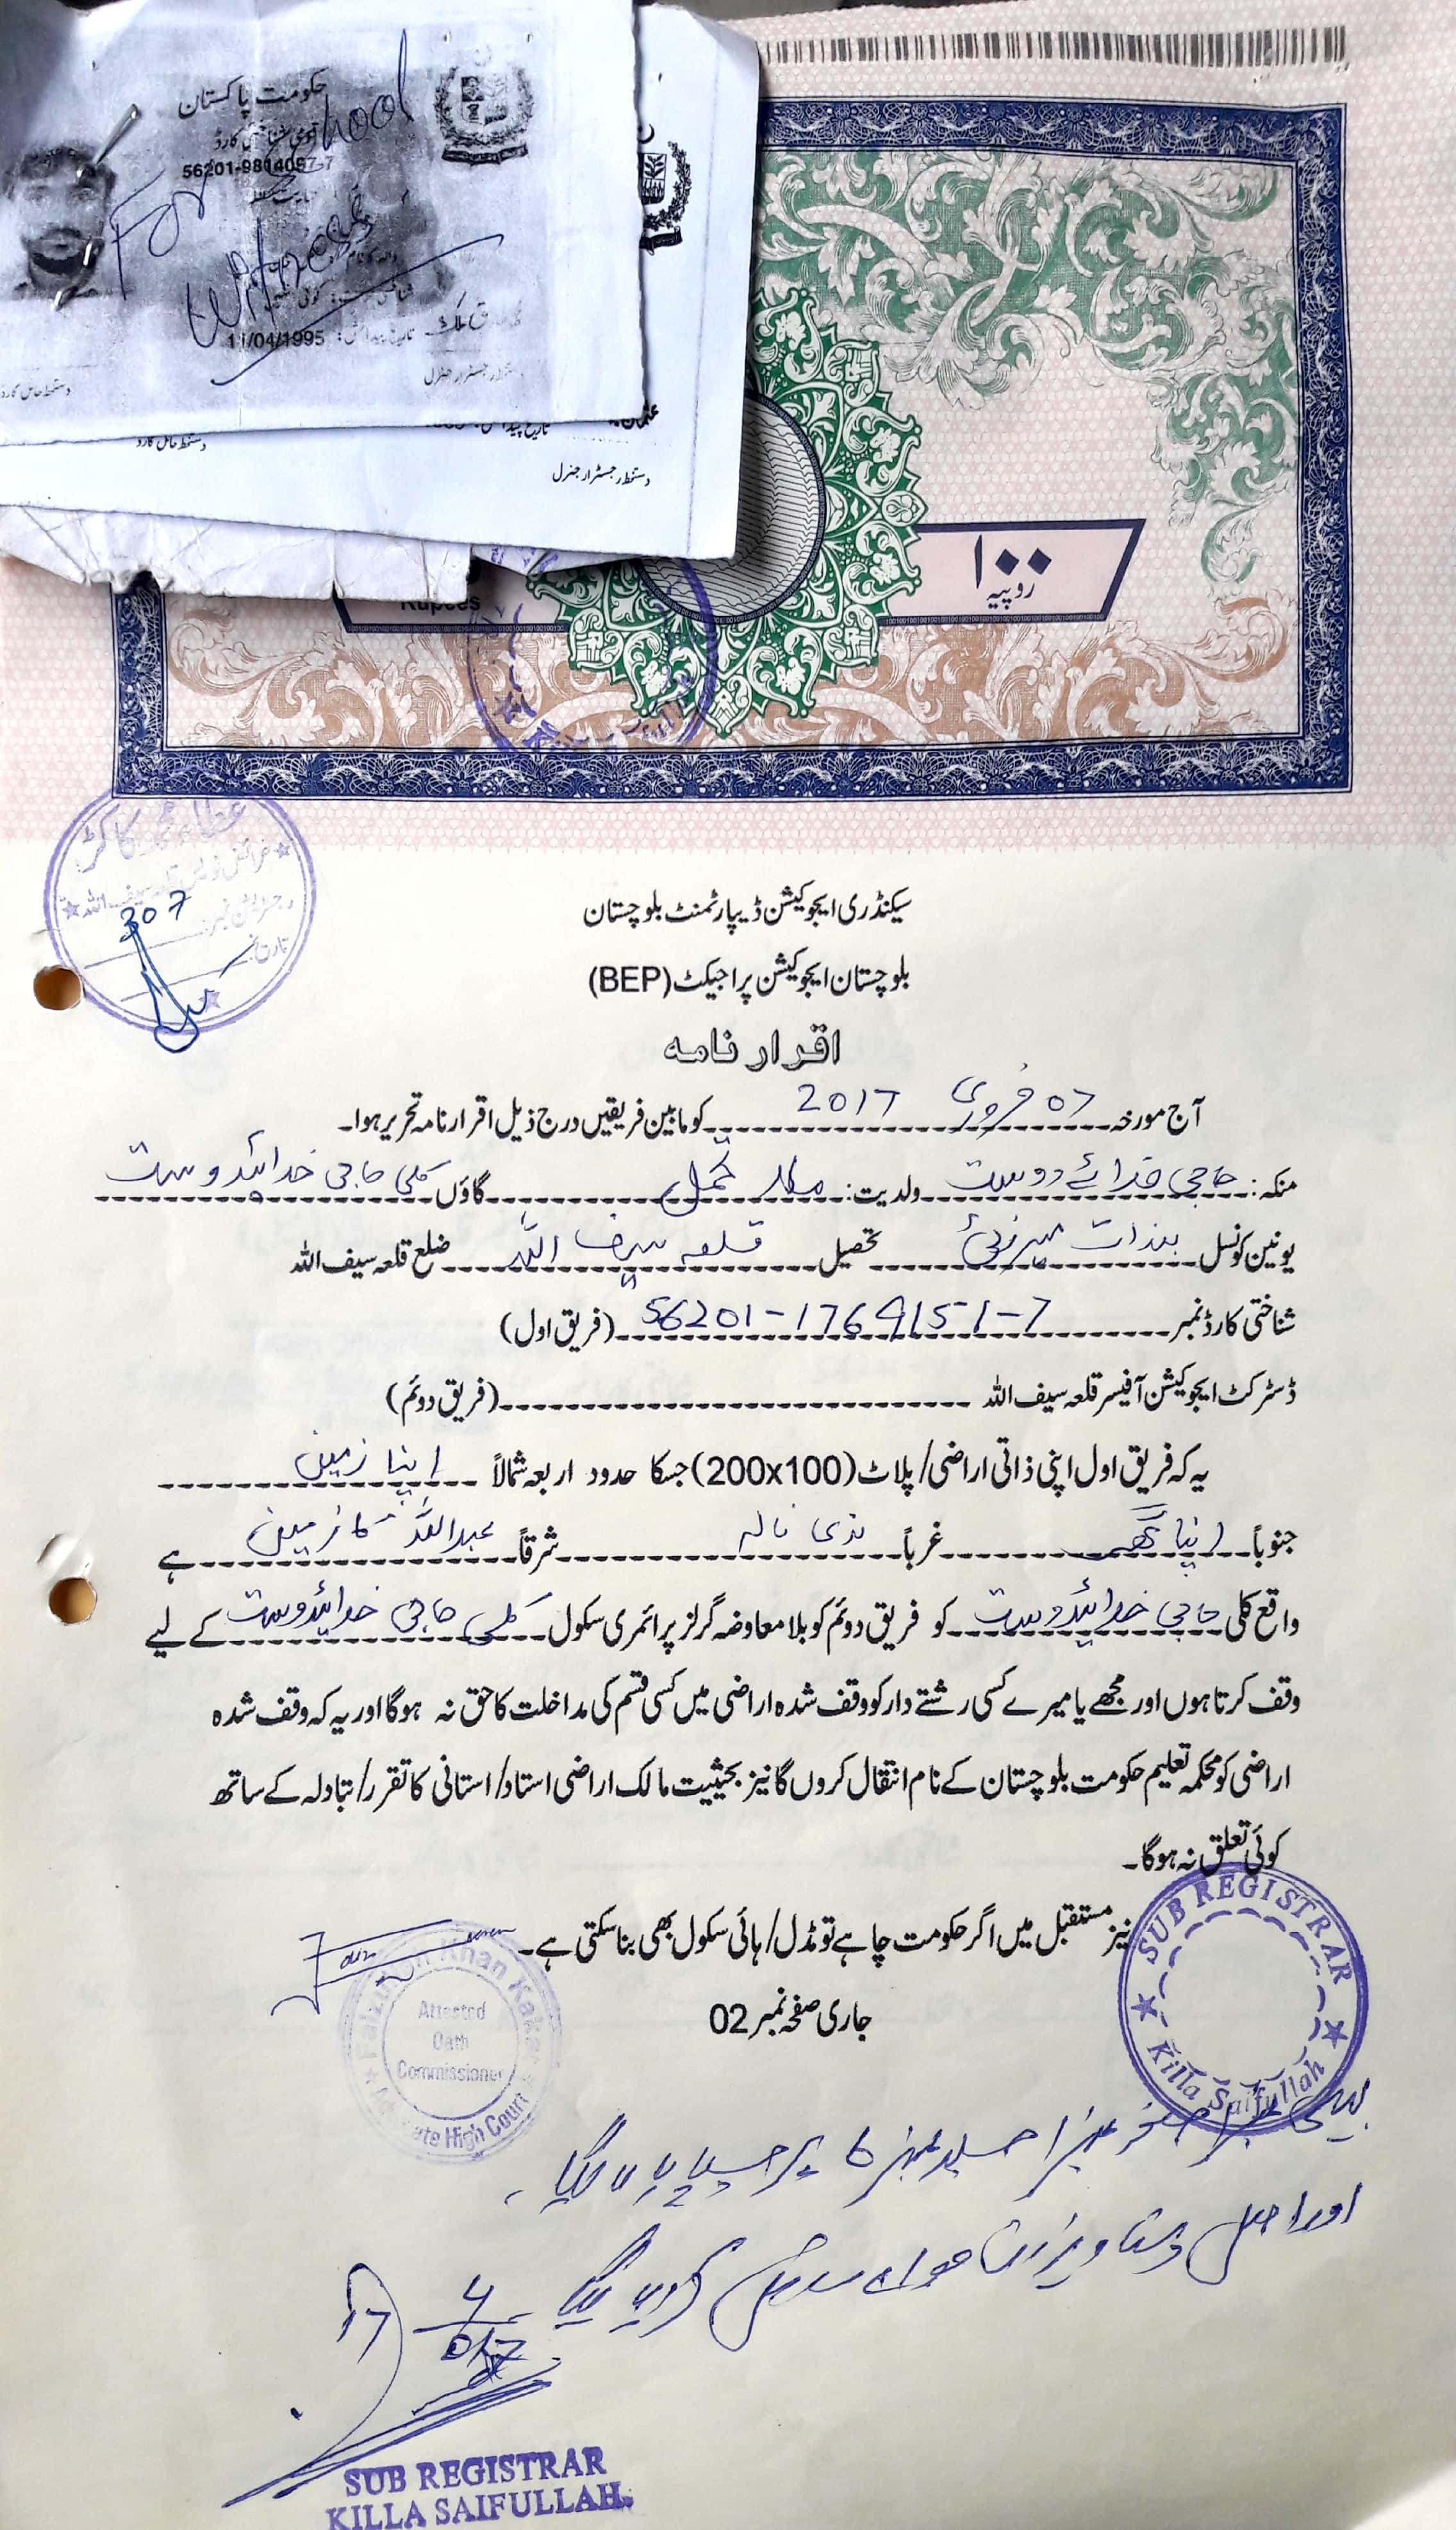 حکومت پاکستان
قومی شناختی کارڈ
For School
56201-9814087-7
Witness
تاریخ پیدائش: 11/04/1995
دستخط رجسٹرار جنرل
دستخط حامل کارڈ
تاریخ پیدائش
دستخط حامل کارڈ
دستخط رجسٹرار جنرل
Rupees
۱۰۰
روپیہ
عطاء محمد کاکڑ
رجسٹریشن نمبر 307
تاریخ
سیکنڈری ایجوکیشن ڈیپارٹمنٹ بلوچستان
بلوچستان ایجوکیشن پراجیکٹ (BEP)
اقرار نامہ
آج مورخہ 07 فروری 2017 کو مابین فریقیں درج ذیل اقرار نامہ تحریر ہوا۔
منکہ: حاجی خدائے دوست ولدیت: ملا گاؤں کلی حاجی خدائیدوست
یونین کونسل تحصیل قلعہ سیف اللہ ضلع قلعہ سیف اللہ
شناختی کارڈ نمبر 56201-1764151-7 (فریق اول)
ڈسٹرکٹ ایجوکیشن آفیسر قلعہ سیف اللہ (فریق دوئم)
یہ کہ فریق اول اپنی ذاتی اراضی/پلاٹ (200x100) جسکا حدود اربعہ شمالاً اپنا زمین
جنوباً اپنا گھر غرباً ندی نالہ شرقاً عبداللہ کا زمین ہے
واقع کلی حاجی خدائیدوست کو فریق دوئم کو بلا معاوضہ گرلز پرائمری سکول کلی حاجی خدائیدوست کے لیے
وقف کرتا ہوں اور مجھے یا میرے کسی رشتے دار کو وقف شدہ اراضی میں کسی قسم کی مداخلت کا حق نہ ہوگا اور یہ کہ وقف شدہ
اراضی کو محکمہ تعلیم حکومت بلوچستان کے نام انتقال کروں گا نیز بحیثیت مالک اراضی استاد/استانی کا تقرر/تبادلہ کے ساتھ
کوئی تعلق نہ ہوگا۔
نیز مستقبل میں اگر حکومت چاہے تو مڈل/ہائی سکول بھی بنا سکتی ہے۔
جاری صفحہ نمبر 02
SUB REGISTRAR
Killa Saifullah
Khan Kakar
Attested
Oath
Commissioner
High Court
اور اصل دستاویزات حوالے کر دیا گیا
SUB REGISTRAR
KILLA SAIFULLAH.